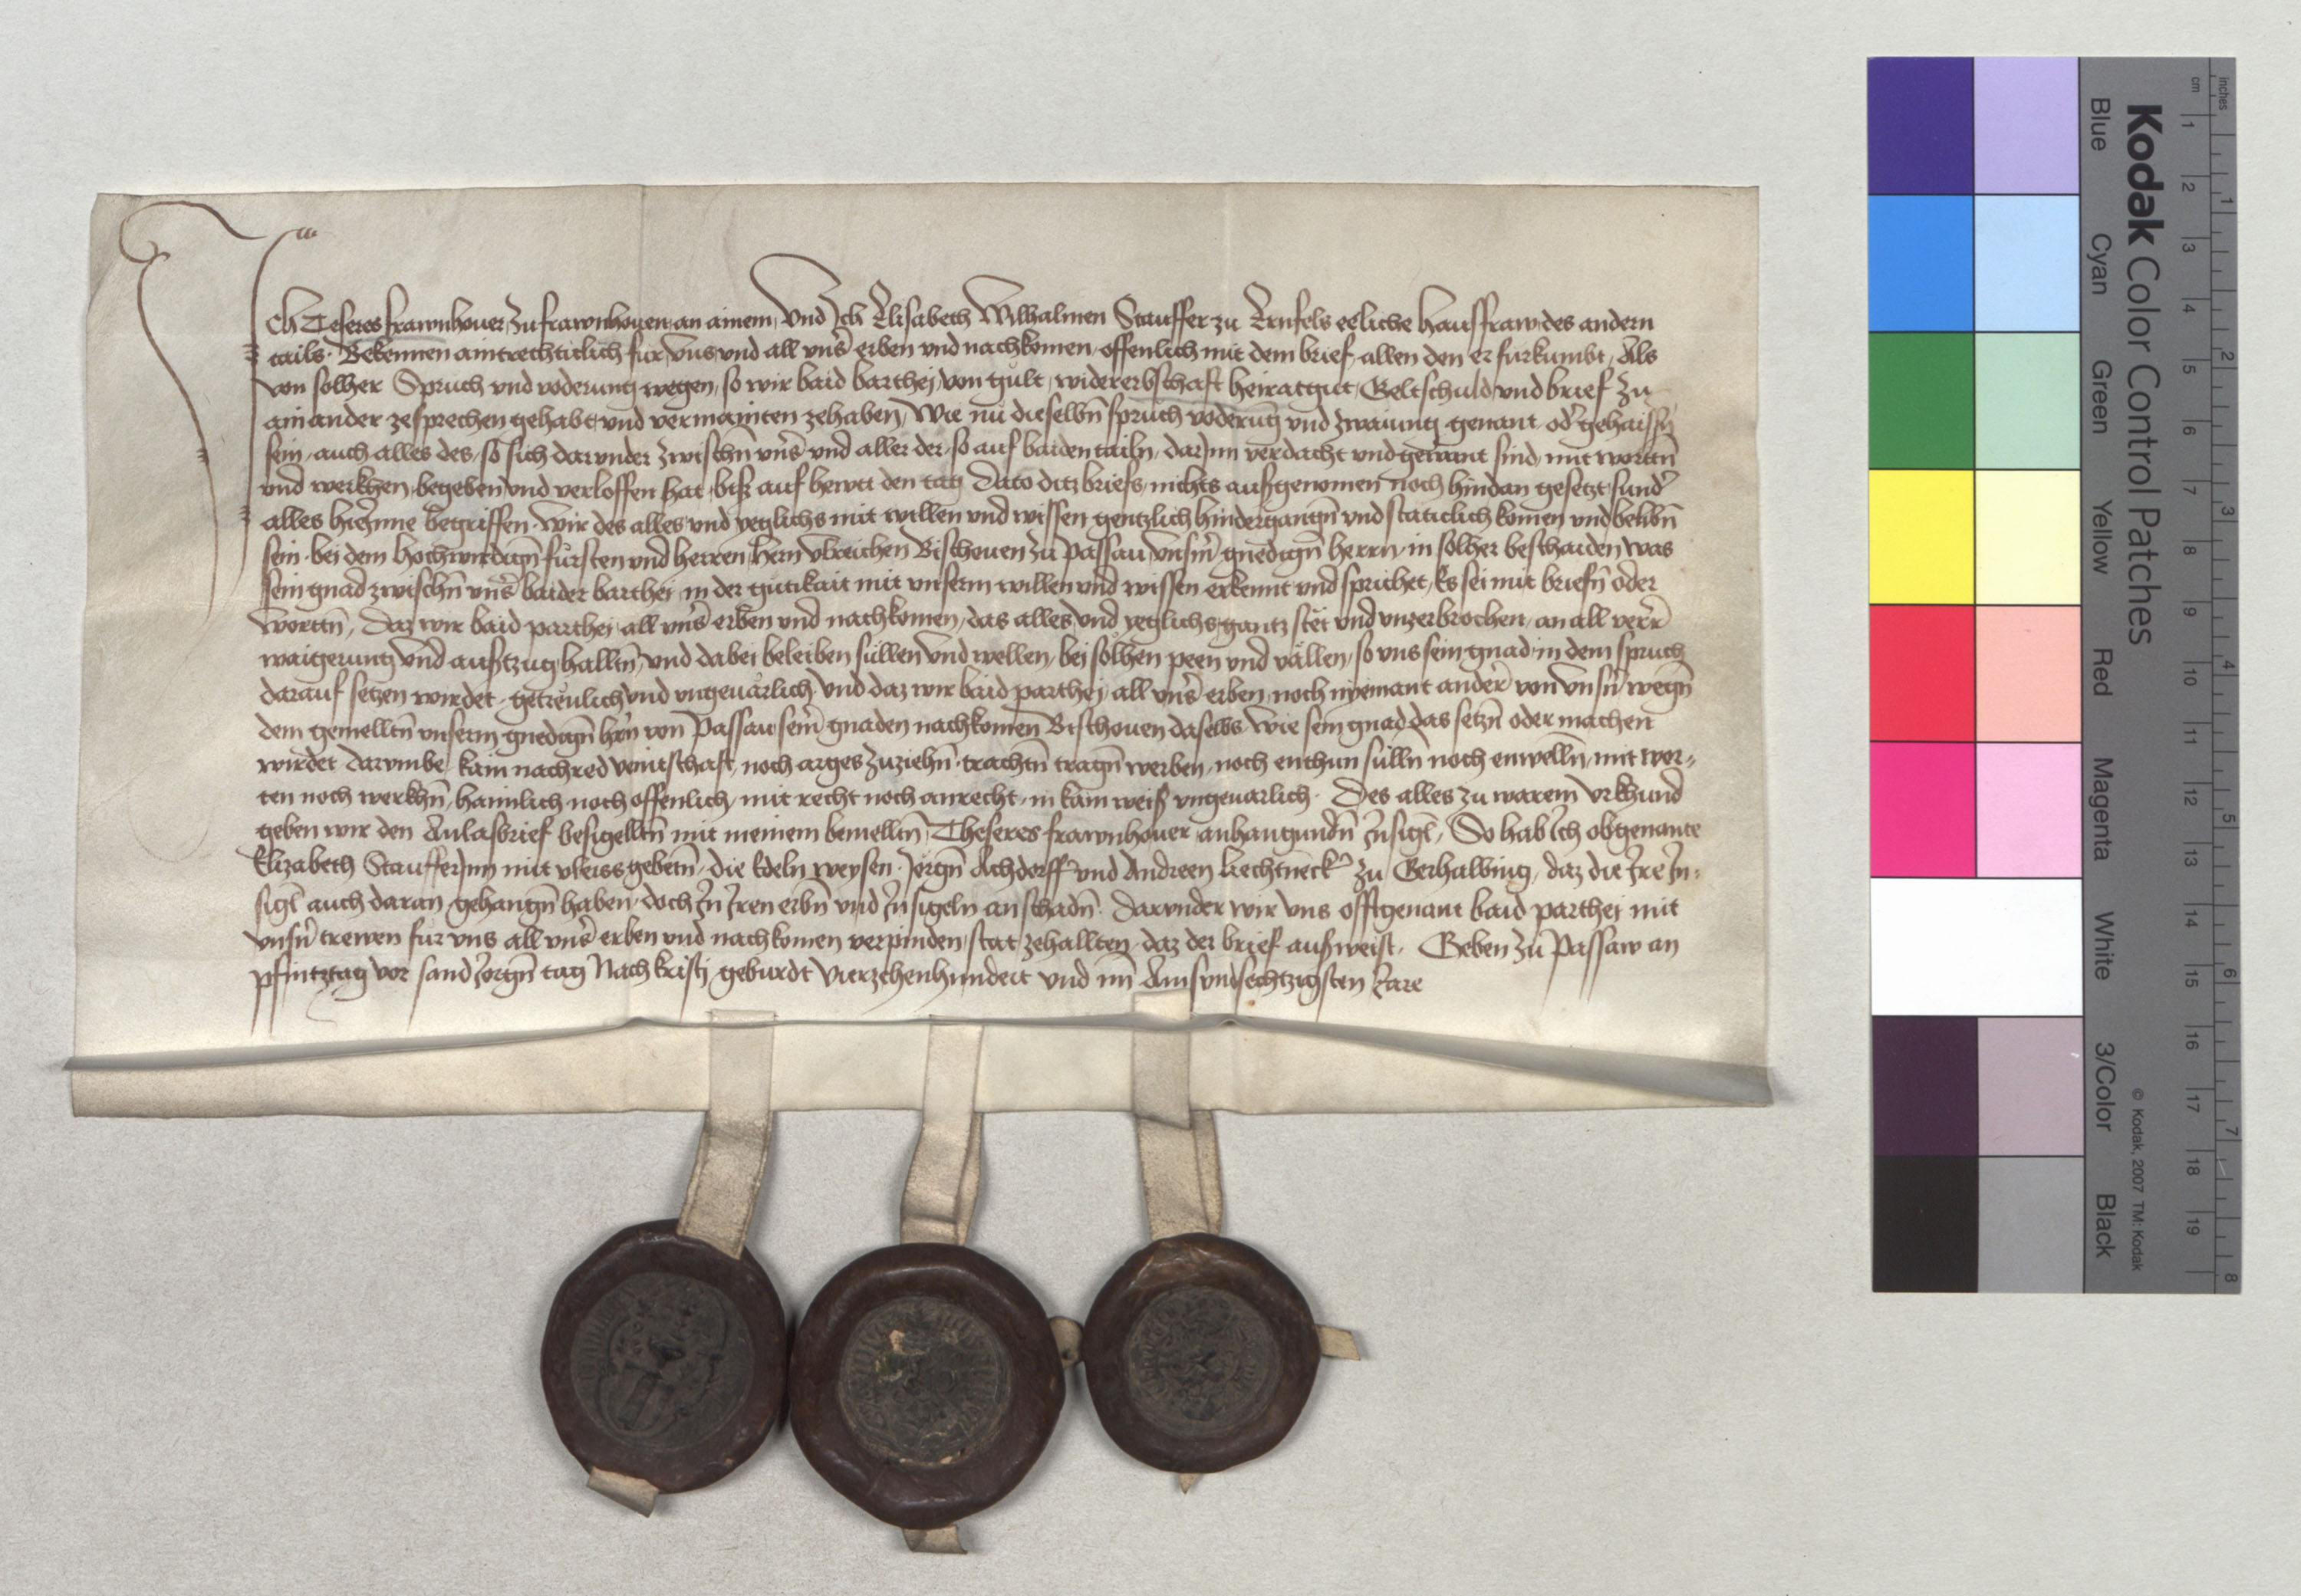 Ich Teseres frawnhouer zu frawnhouen an ainem, Vnd Ich Elisabeth Wilhalmen Stauffer zu Ernfels eeliche hausfraw des andern
tails. Bekennen aintrechticlich fur vns vnd all vnser erben vnd nachkomen, offenlich mit dem brief, allen den er furkumbt, Als
von solher Spruch vnd voderung wegen, so wir baid barthej von gult, widererbschaft heiratgut, Geltschuld vnd brief zu
ain ander zesprechen gehabt vnd vermainten zehaben, Wie nu dieselbn spruch voderung vnd zwaiung genant, oder gehaissn
sein, auch alles des, so sich darunder zwischn vns vnd aller der, so auf baiden tailn, darjnn verdacht vnd gewant sind, mit wortn
vnd werkhen, begeben vnd verloffen hat, bisz auf hewt den tag Dato ditz briefs, nichts ausgenomen noch hindan gesetzt, sunder
alles hierjnne begriffen. Wir des alles vnd yeglichs mit willen vnd wissen gentzlich hindergangn vnd staticlich komen vnd belibn
sein. bei dem hochwirdign fursten vnd herren, hern vlreichen Bischouen zu Passau vnsm gnedign herrn, in solher beschaiden was
sein gnad zwischn vns baider barthej in der gutikait mit vnserm willen vnd wissen erkennt vnd sprichet, Es sei mit briefn oder
wortn, Daz wir baid parthej all vns erben vnd nachkomen, das alles vnd yeglichs gantz stet vnd vnzerbrochen, an all verr
waigerung vnd ausztzug halltn, vnd dabei beleiben sullen vnd wellen, bei solhen peen vnd vallen, so vns sein gnad in dem spruch
darauf setzen wirdet, getreulich vnd vngeuarlich. Vnd daz wir baid parthej, all vns erben noch nyemant ander von vnsn wegn
dem gemelltn vnserm gnedign hern von Passau seinn gnaden nachkomen Bischouen daselbs Wie sein gnad das setzn oder machen
wirdet darumbe, kain nachred veintschaft, noch arges zuziehn trachtn tragn werben, noch enthun sulln noch enwelln, mit wor-
ten noch werkhn, haimlich noch offenlich, mit recht noch anrecht, in kain weisz vngeuarlich. Des alles zu warem Vrkhund
geben wir den Anlasbrief besigelltn mit meinem bemelltn, Theseres frawnhouer anhangundn Insigl, So hab Ich obgenante
Elizabeth Staufferjnn mit vleiss gebetn, die Edeln weysen Jorgn Achdorffer vnd Andreen Liechtneckh zu Gerhalbing, daz die Ire In-
sigl auch daran gehangn haben, doch In Iren erbn vnd Insigeln an schadn. Darunder wir vns offtgenant baid parthej mit
vnsn trewen fur vns all vns erben vnd nachkomen verpinden, stat zehallten, daz der brief auszweist. Geben zu Passaw an
pfintztag vor sand Jorgn tag Nach kristj geburdt Vierzehenhundert vnd im Ainsvndsechtzigsten Jare
Kodak Color Control Patches
Blue Cyan Green Yellow Red Magenta White 3/Color Black
cm 1 2 3 4 5 6 7 8 9 10 11 12 13 14 15 16 17 18 19
inches 1 2 3 4 5 6 7 8
© Kodak, 2007 TM: Kodak